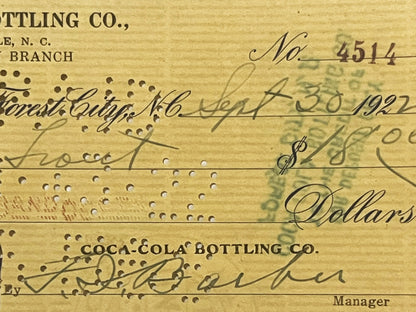 OTTLING CO.,
LE, N. C.
BRANCH
No. 4514
Forest City, N.C. Sept 30 1922
Trout $ 18.00
Dollars
COCA-COLA BOTTLING CO.
By T. J. Barber
Manager